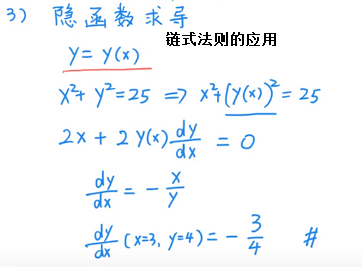 3) 隐函数求导
链式法则的应用
y = y(x)
x²+ y²=25 ⇒ x²+(y(x))²= 25
2x + 2 y(x) dy/dx = 0
dy/dx = - x/y
dy/dx (x=3, y=4) = - 3/4 #